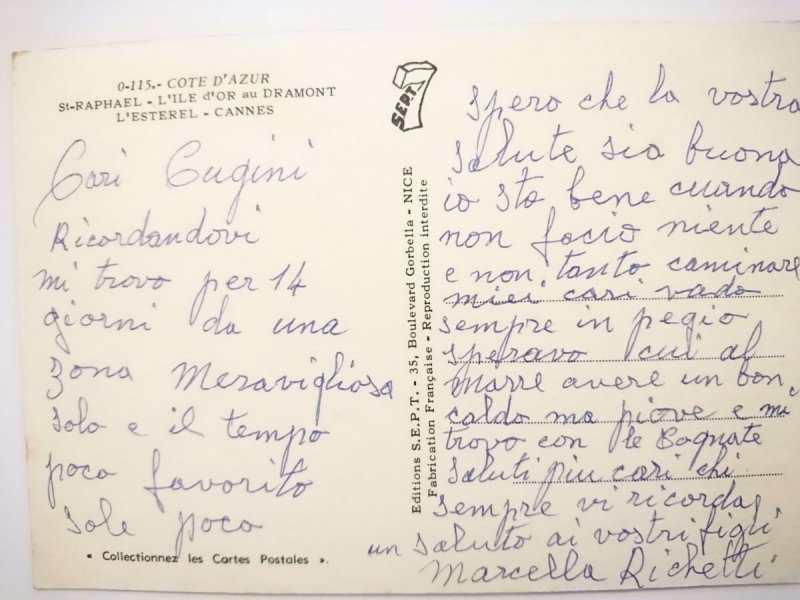 0-115.- COTE D'AZUR
St-RAPHAEL - L'ILE d'OR au DRAMONT
L'ESTEREL - CANNES
Cari Cugini
Ricordandovi
mi trovo per 14
giorni da una
zona meravigliosa
solo e il tempo
poco favorito
sole poco
« Collectionnez les Cartes Postales ».
SEPT 7
Editions S.E.P.T. - 35, Boulevard Gorbella - NICE
Fabrication Française - Reproduction interdite
Spero che la vostra
salute sia buona
io sto bene cuando
non facio niente
e non tanto caminare
miei cari vado
sempre in pegio
speravo cui al
marre avere un bon
caldo ma piove e mi
trovo con le Cognate
Saluti piu cari chi
sempre vi ricorda
un saluto ai vostri figli
Marcella Richetti